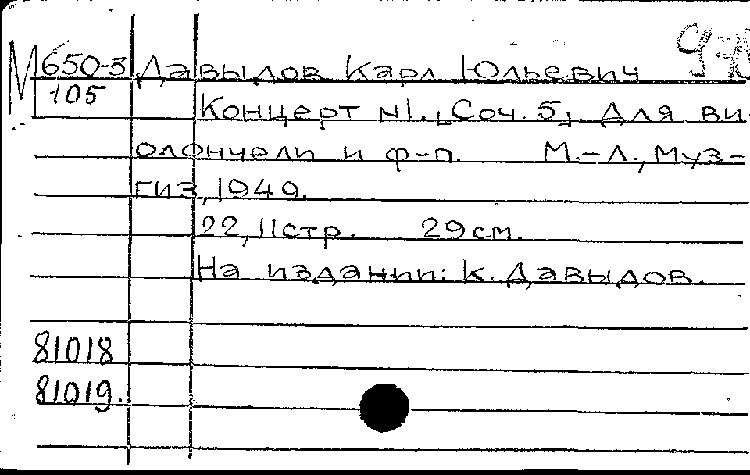 М 650-3 Давыдов Карл Юльевич
105 Концерт №1., [Соч. 5], Для ви-
олончели и ф-п. М.-Л., Муз-
гиз, 1949.
22, 11 стр. 29 см.
На издании: К. Давыдов.
81018
81019.